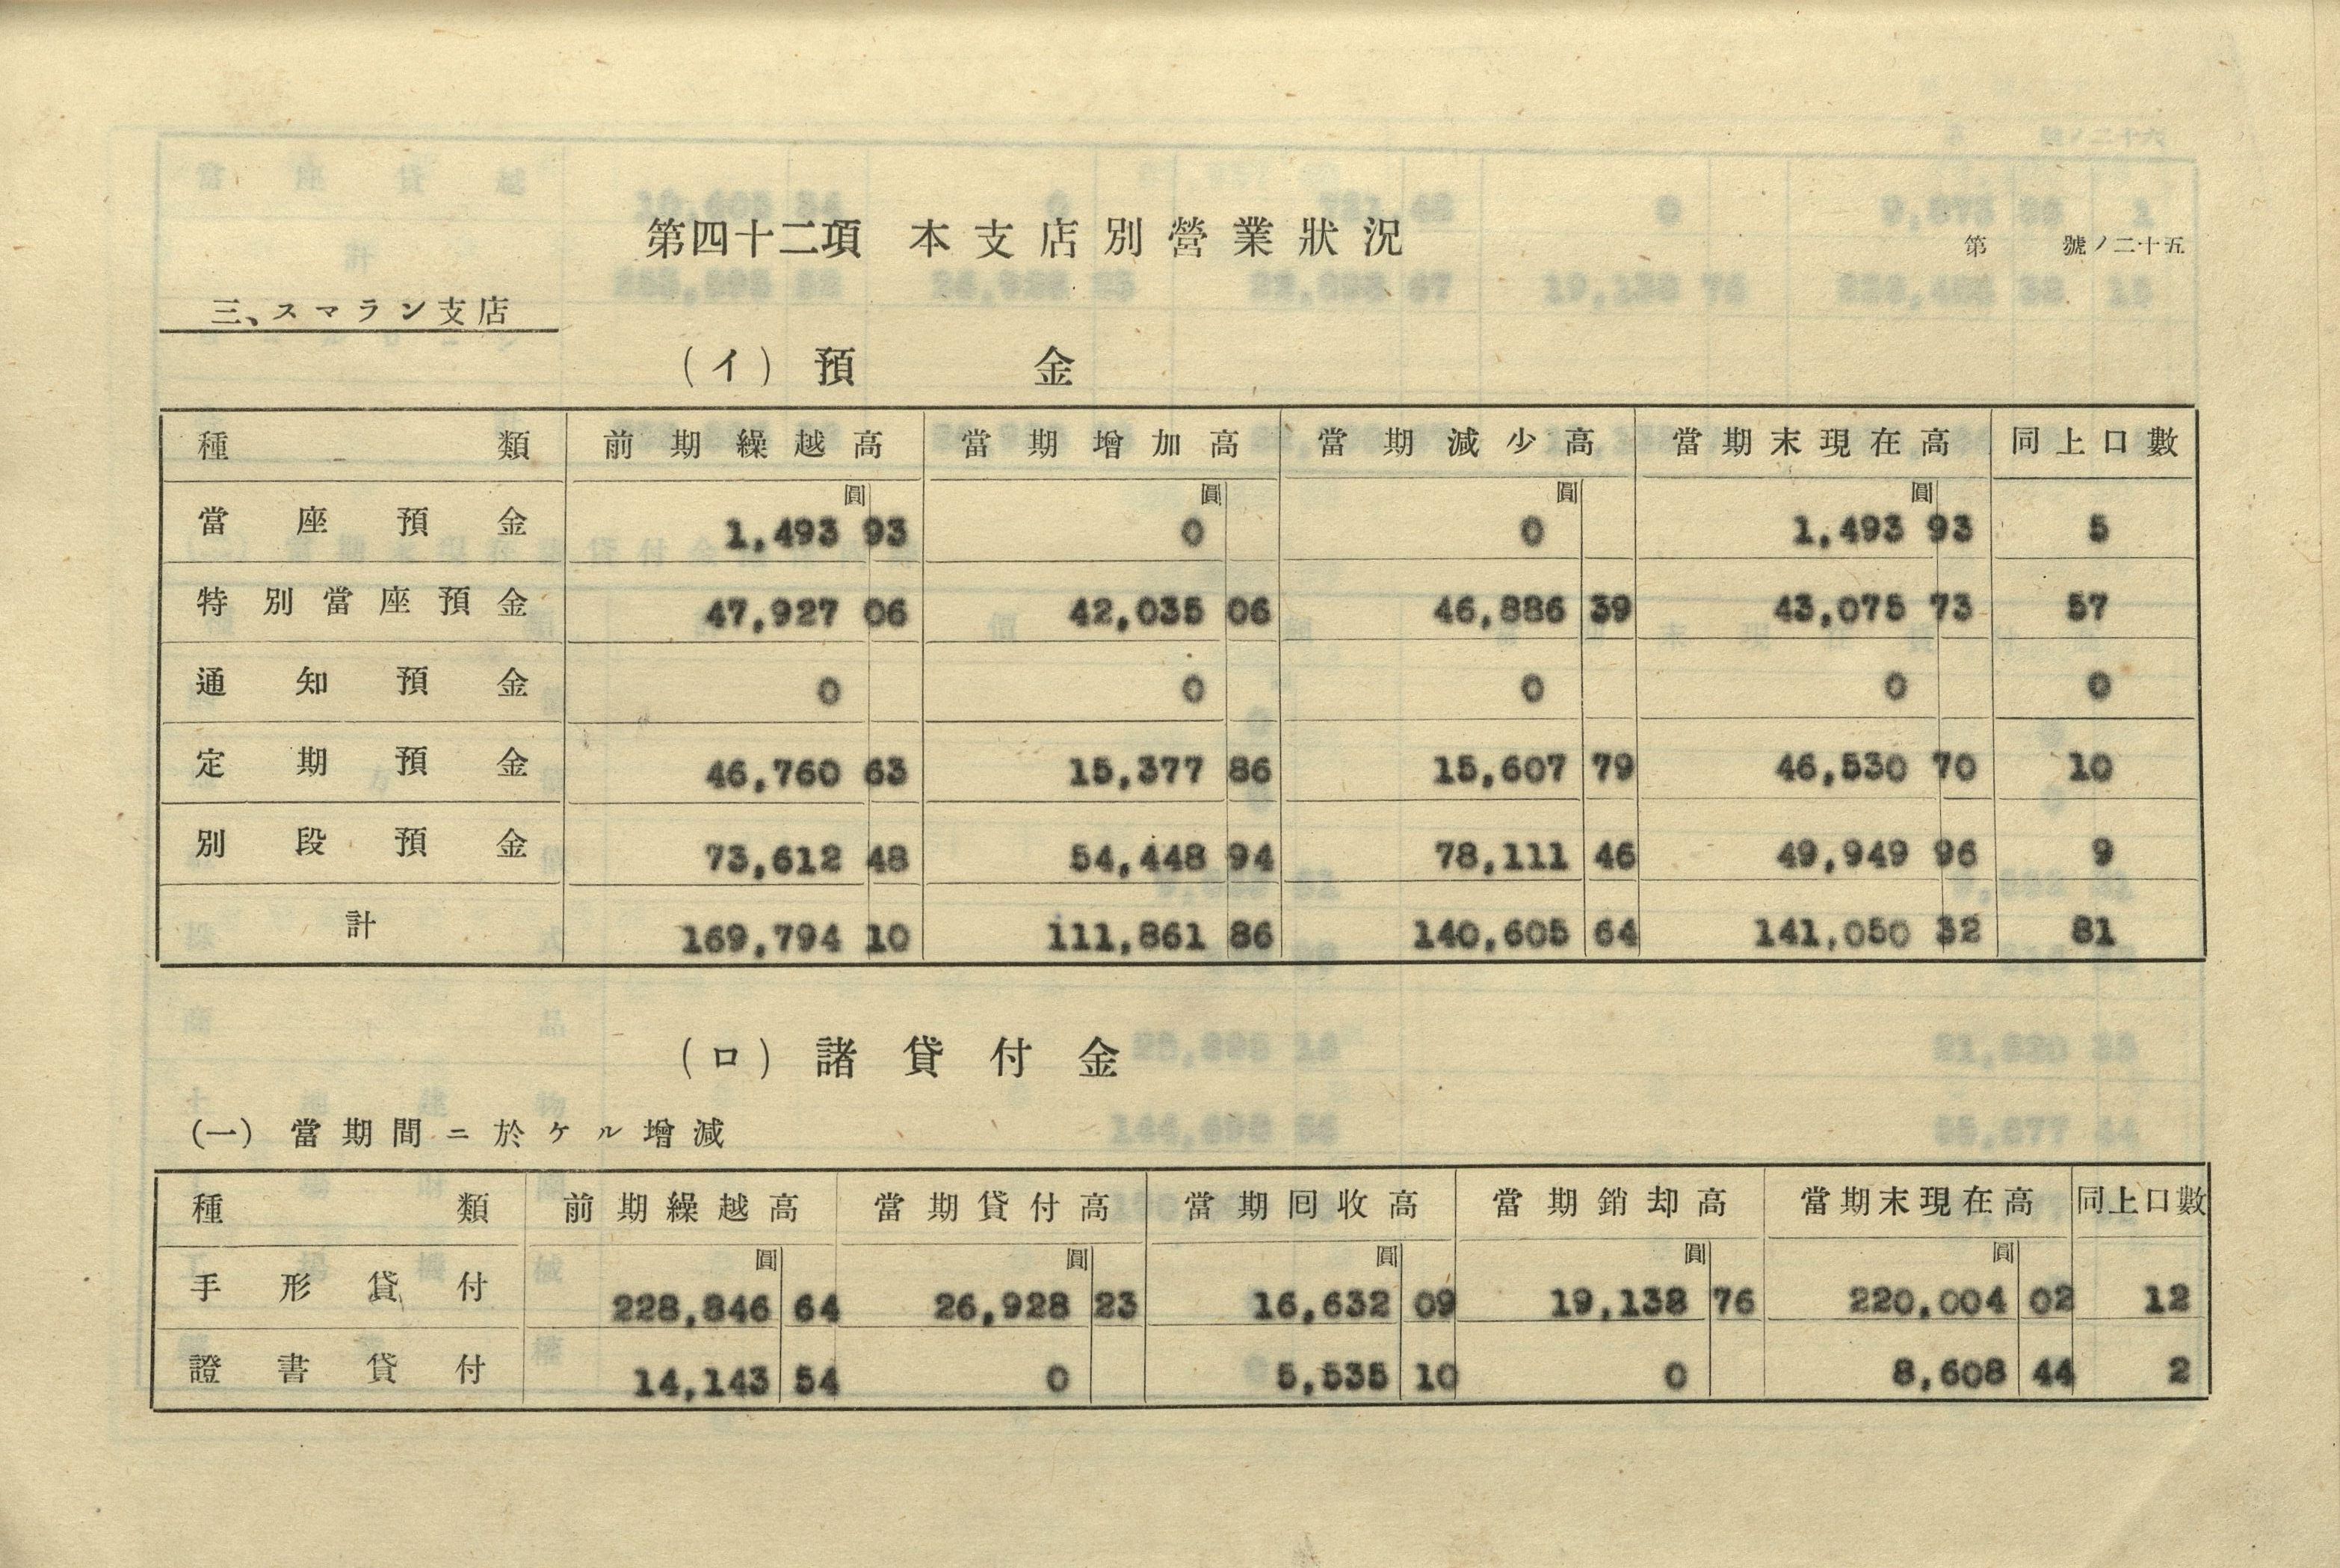 第四十二項 本支店別營業狀況
第 號ノ二十五
三、スマラン支店
(イ) 預金
種類 前期繰越高 當期增加高 當期減少高 當期末現在高 同上口數
圓 圓 圓 圓
當座預金 1,493 93 0 0 1,493 93 5
特別當座預金 47,927 06 42,035 06 46,886 39 43,075 73 57
通知預金 0 0 0 0 0
定期預金 46,760 63 15,377 86 15,607 79 46,530 70 10
別段預金 73,612 48 54,448 94 78,111 46 49,949 96 9
計 169,794 10 111,861 86 140,605 64 141,050 32 81
(ロ) 諸貸付金
(一) 當期間ニ於ケル增減
種類 前期繰越高 當期貸付高 當期囘收高 當期銷却高 當期末現在高 同上口數
圓 圓 圓 圓 圓
手形貸付 228,846 64 26,928 23 16,632 09 19,138 76 220,004 02 12
證書貸付 14,143 54 0 5,535 10 0 8,608 44 2